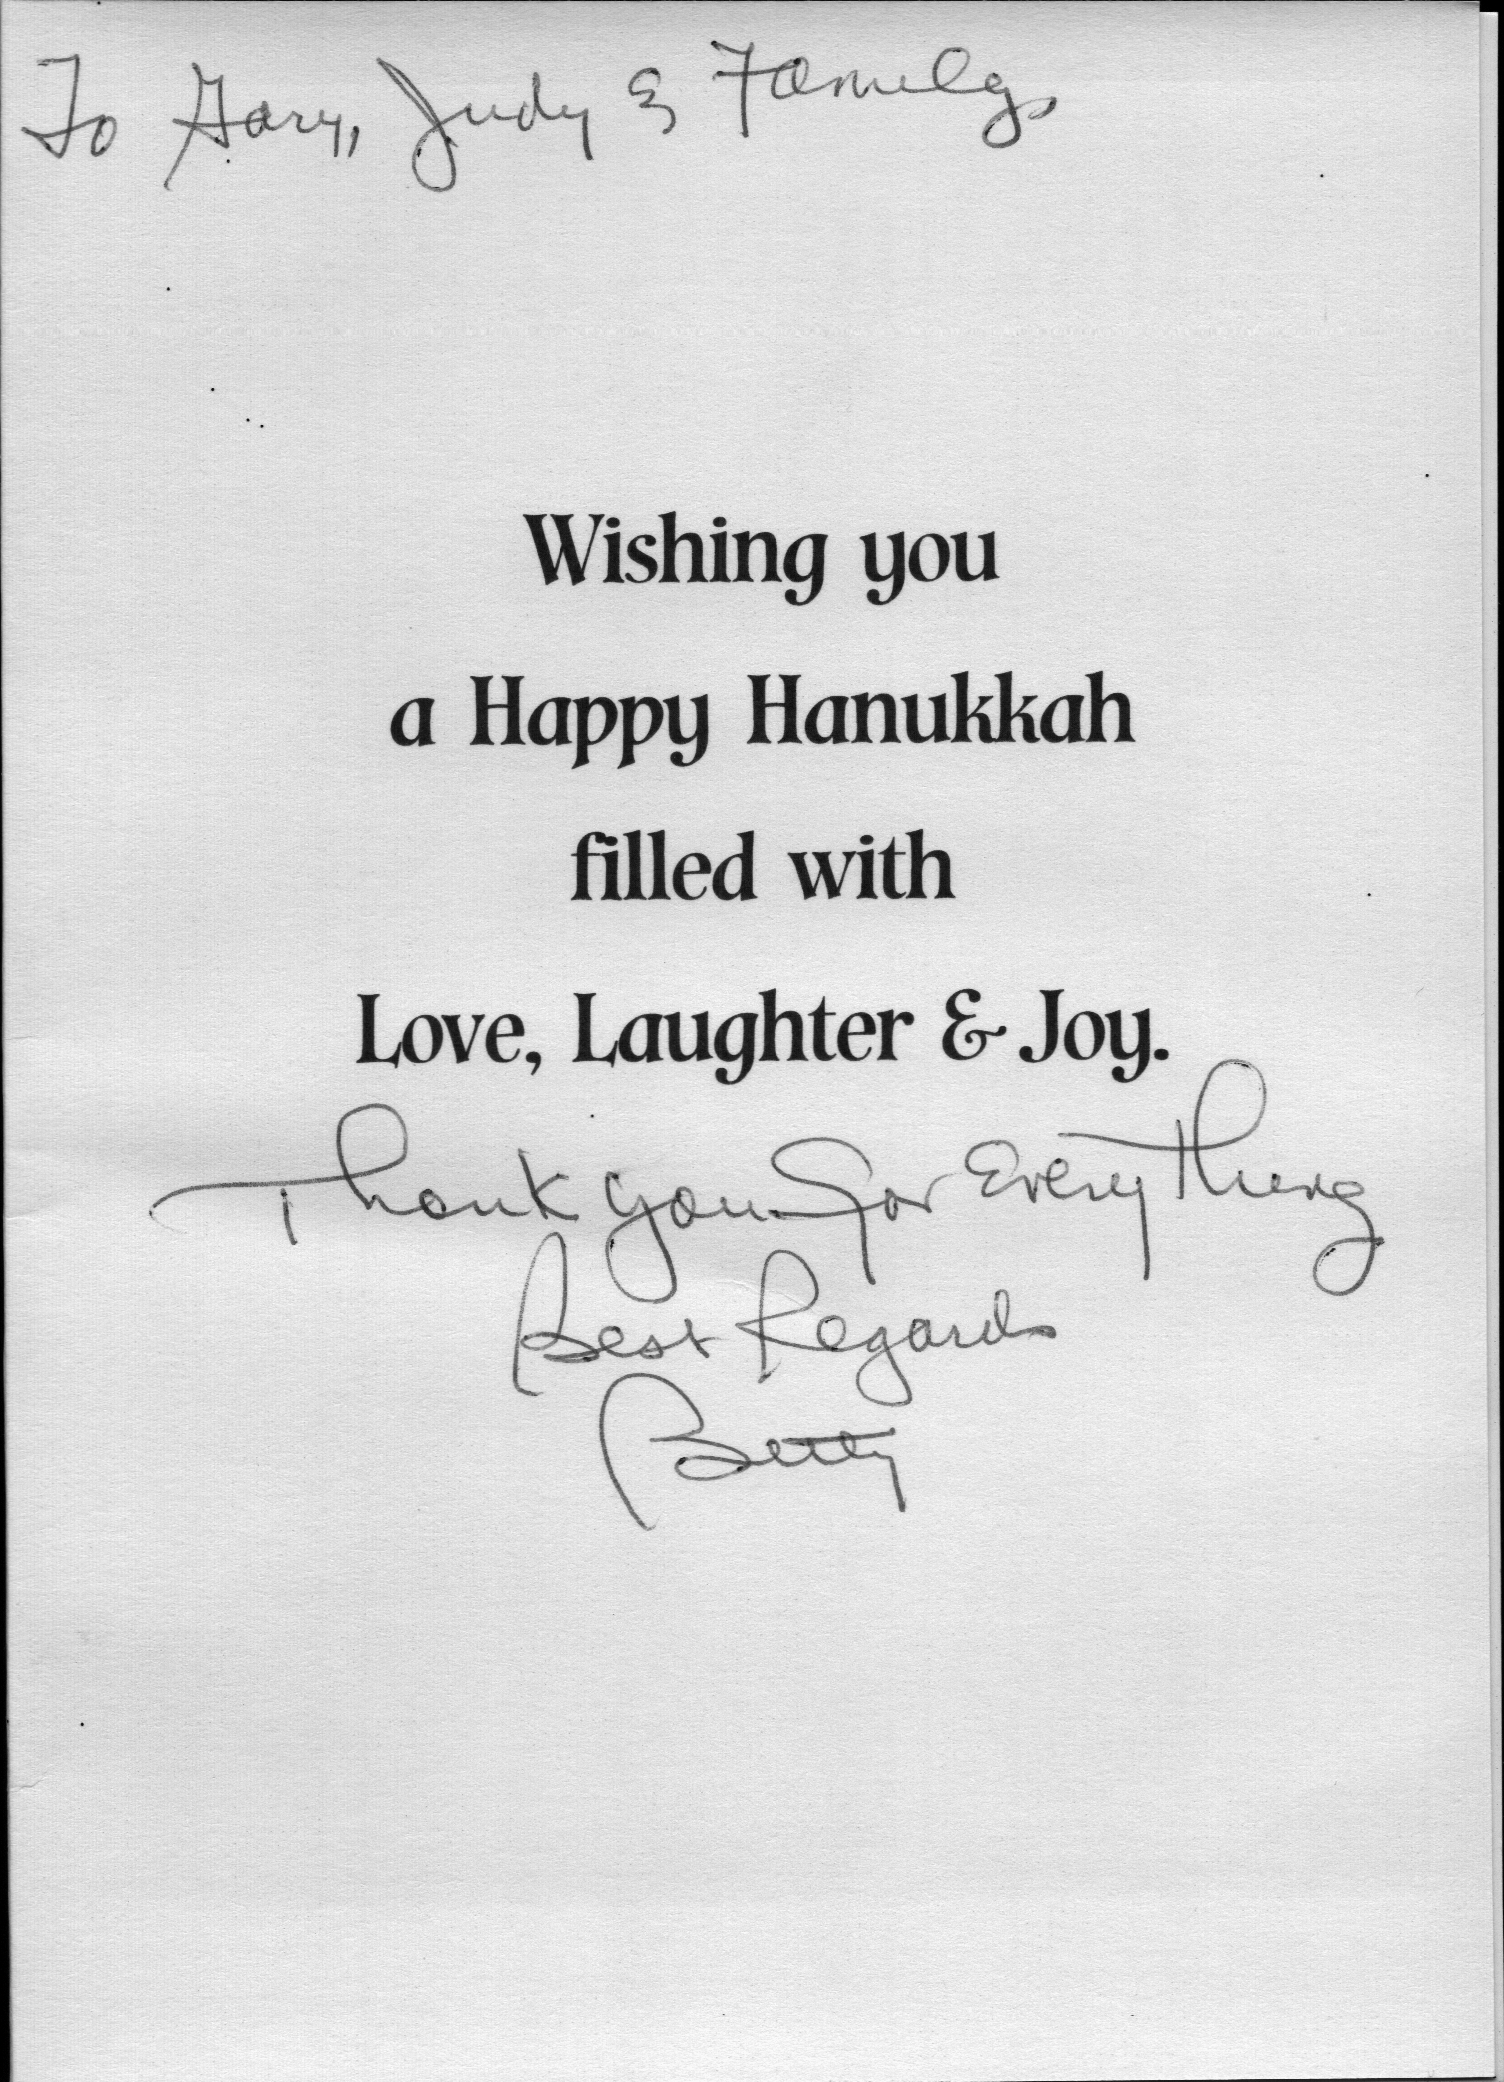 To Gary, Judy & Family,
Wishing you
a Happy Hanukkah
filled with
Love, Laughter & Joy.
Thank you for EveryThing
Best Regards
Betty